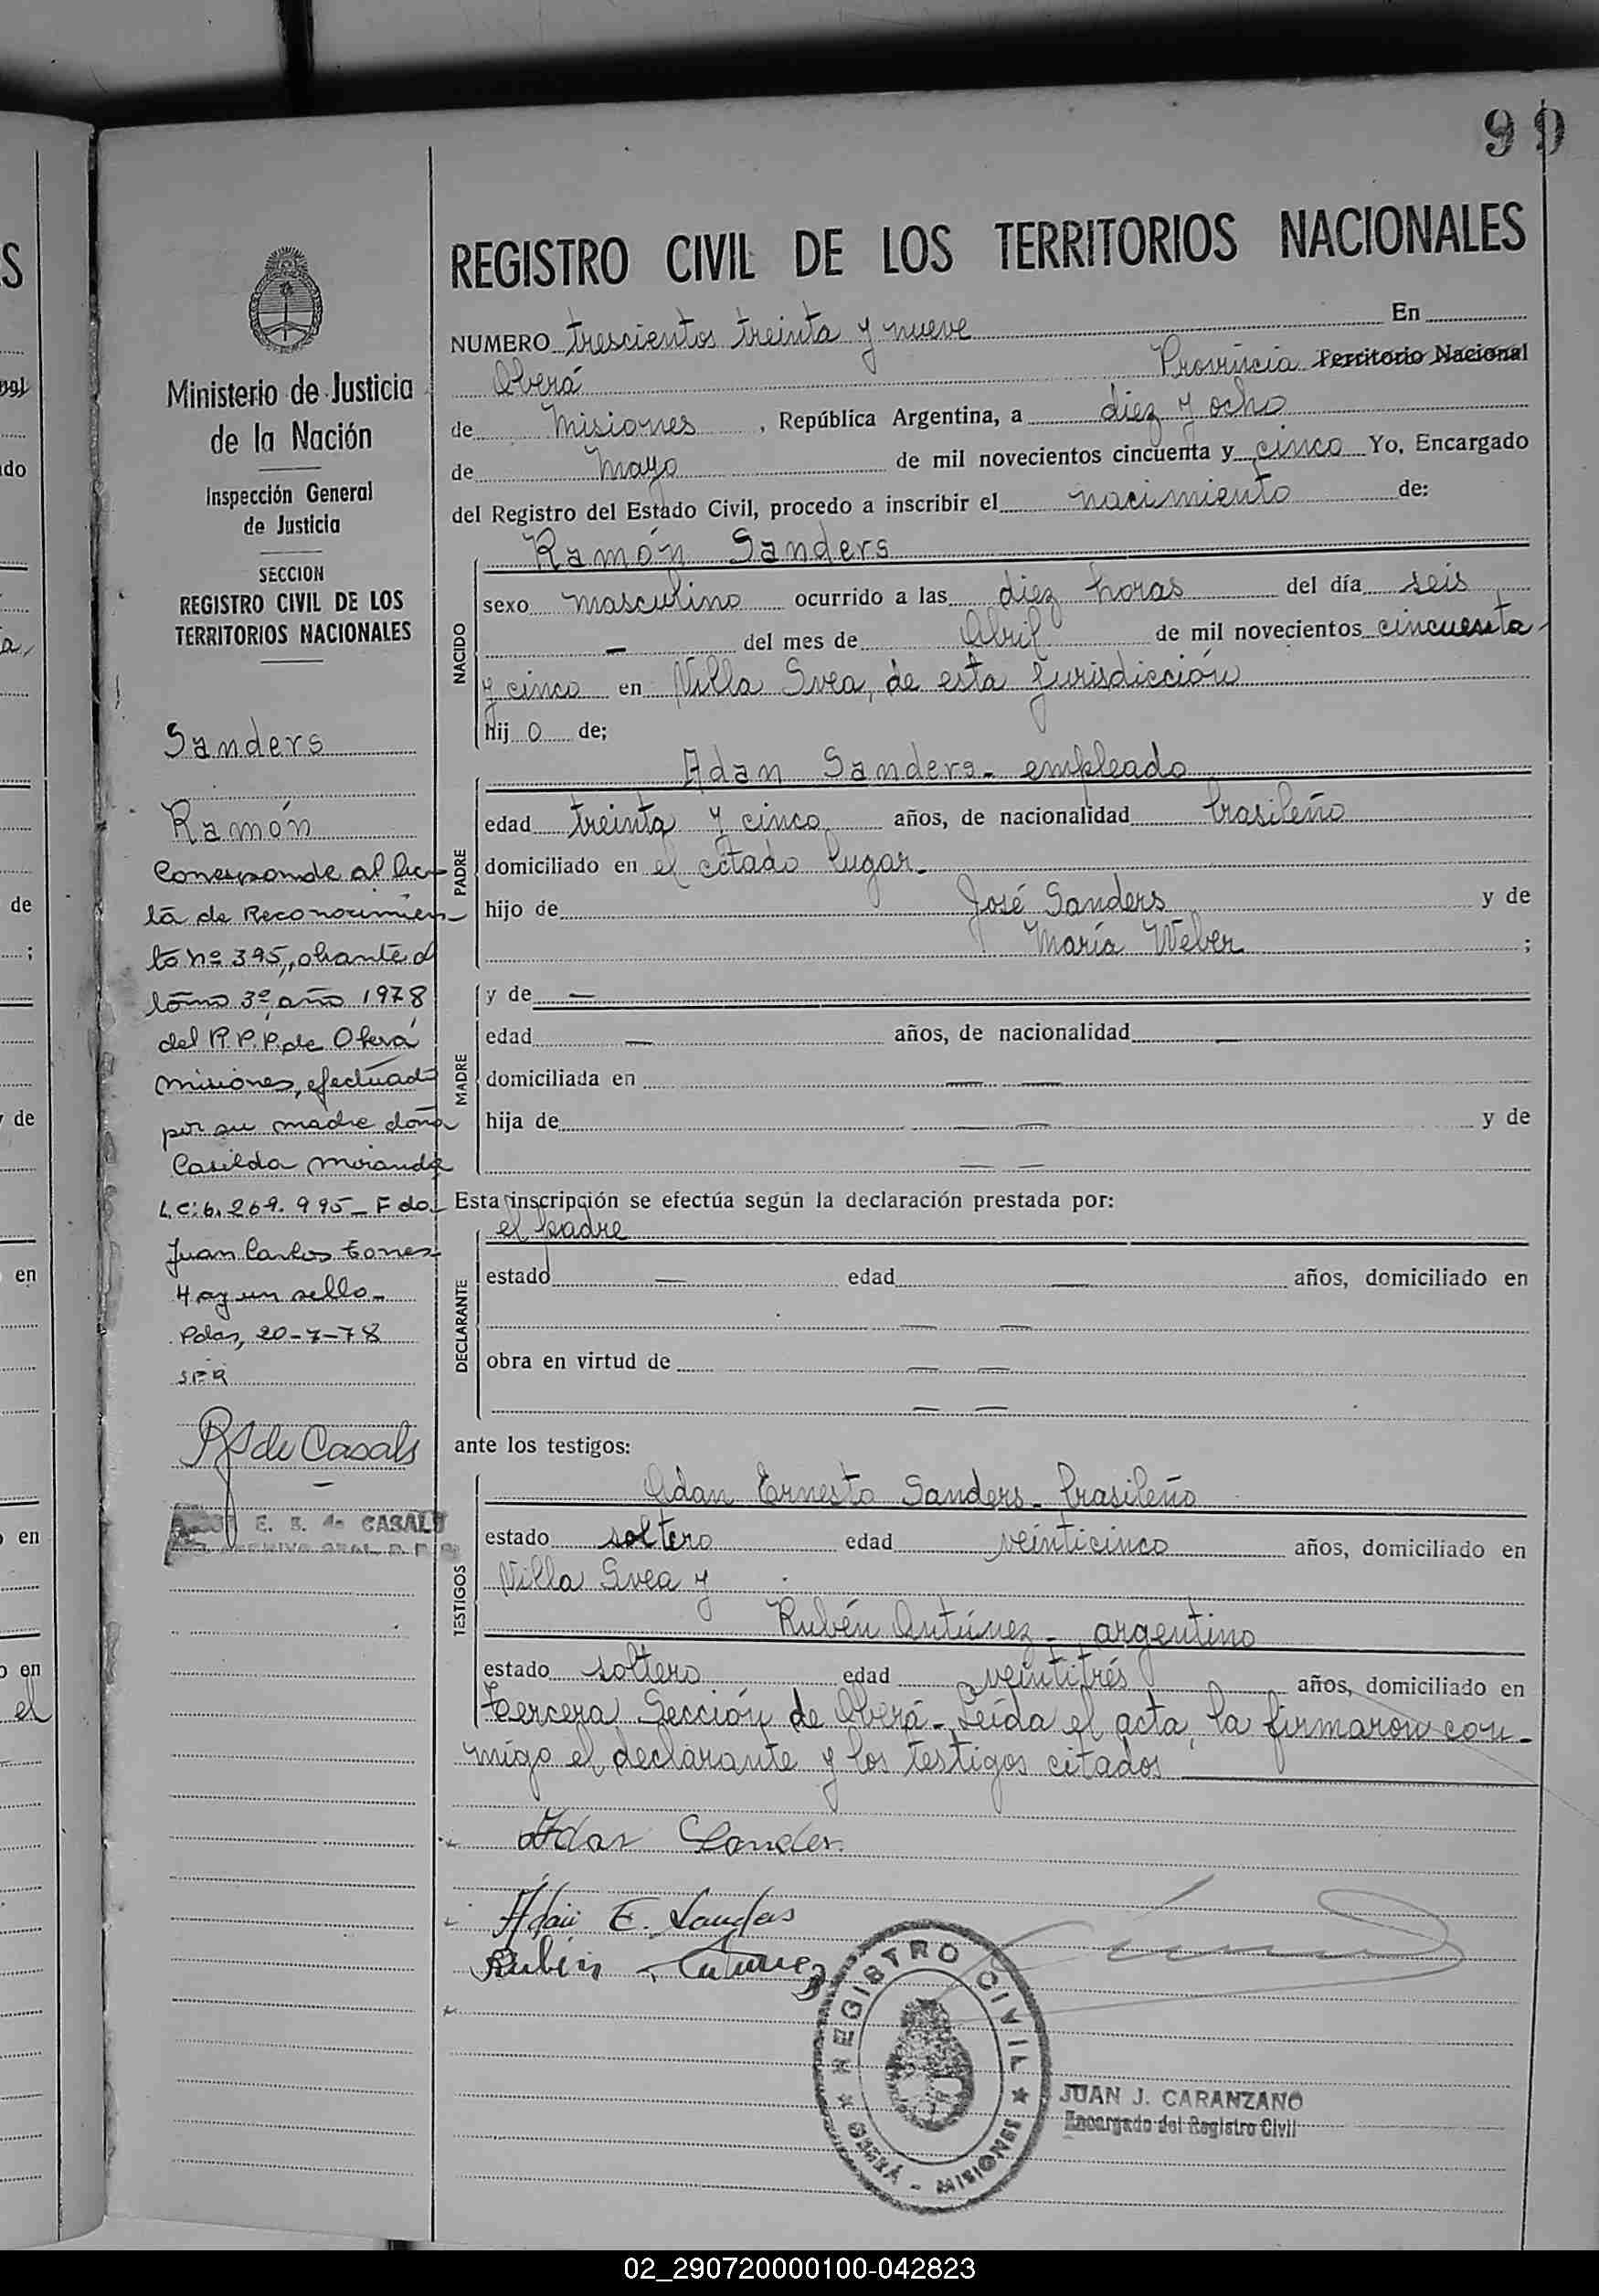 99
REGISTRO CIVIL DE LOS TERRITORIOS NACIONALES
NUMERO trescientos treinta y nueve En
Oberá Provincia Territorio Nacional
de Misiones, República Argentina, a diez y ocho
de Mayo de mil novecientos cincuenta y cinco Yo, Encargado
del Registro del Estado Civil, procedo a inscribir el nacimiento de:
NACIDO
Ramón Sanders
sexo masculino ocurrido a las diez horas del día seis
— del mes de Abril de mil novecientos cincuenta
y cinco en Villa Svea, de esta jurisdicción
hij o de;
PADRE
Adan Sanders - empleado
edad treinta y cinco años, de nacionalidad brasileño
domiciliado en el citado lugar.
hijo de José Sanders y de
María Weber ;
MADRE
y de —
edad — años, de nacionalidad —
domiciliada en — —
hija de — — y de
— —
Esta inscripción se efectúa según la declaración prestada por:
DECLARANTE
el padre
estado — edad — años, domiciliado en
— —
obra en virtud de — —
— —
ante los testigos:
TESTIGOS
Adan Ernesto Sanders - brasileño
estado soltero edad veinticinco años, domiciliado en
Villa Svea y
Rubén Antúnez - argentino
estado soltero edad veintitrés años, domiciliado en
tercera Sección de Oberá - Leída el acta, la firmaron con-
migo el declarante y los testigos citados
Adan Sander.
Adan E. Sanders
Rubén Antunez
REGISTRO CIVIL
OBERÁ - MISIONES
JUAN J. CARANZANO
Encargado del Registro Civil
Ministerio de Justicia
de la Nación
Inspección General
de Justicia
SECCION
REGISTRO CIVIL DE LOS
TERRITORIOS NACIONALES
Sanders
Ramón
Corresponde al Ac-
ta de Reconocimien-
to nº 395, obrante al
tomo 3º, año 1978
del R.P.P. de Oberá
Misiones, efectuado
por su madre doña
Casilda Miranda
L.C: 6.269.995 - Fdo.
Juan Carlos Torres
Hay un sello -
Pdas, 20-7-78
SFR
RS de Casals
E. S. de CASALS
ARCHIVO GRAL.
02_290720000100-042823